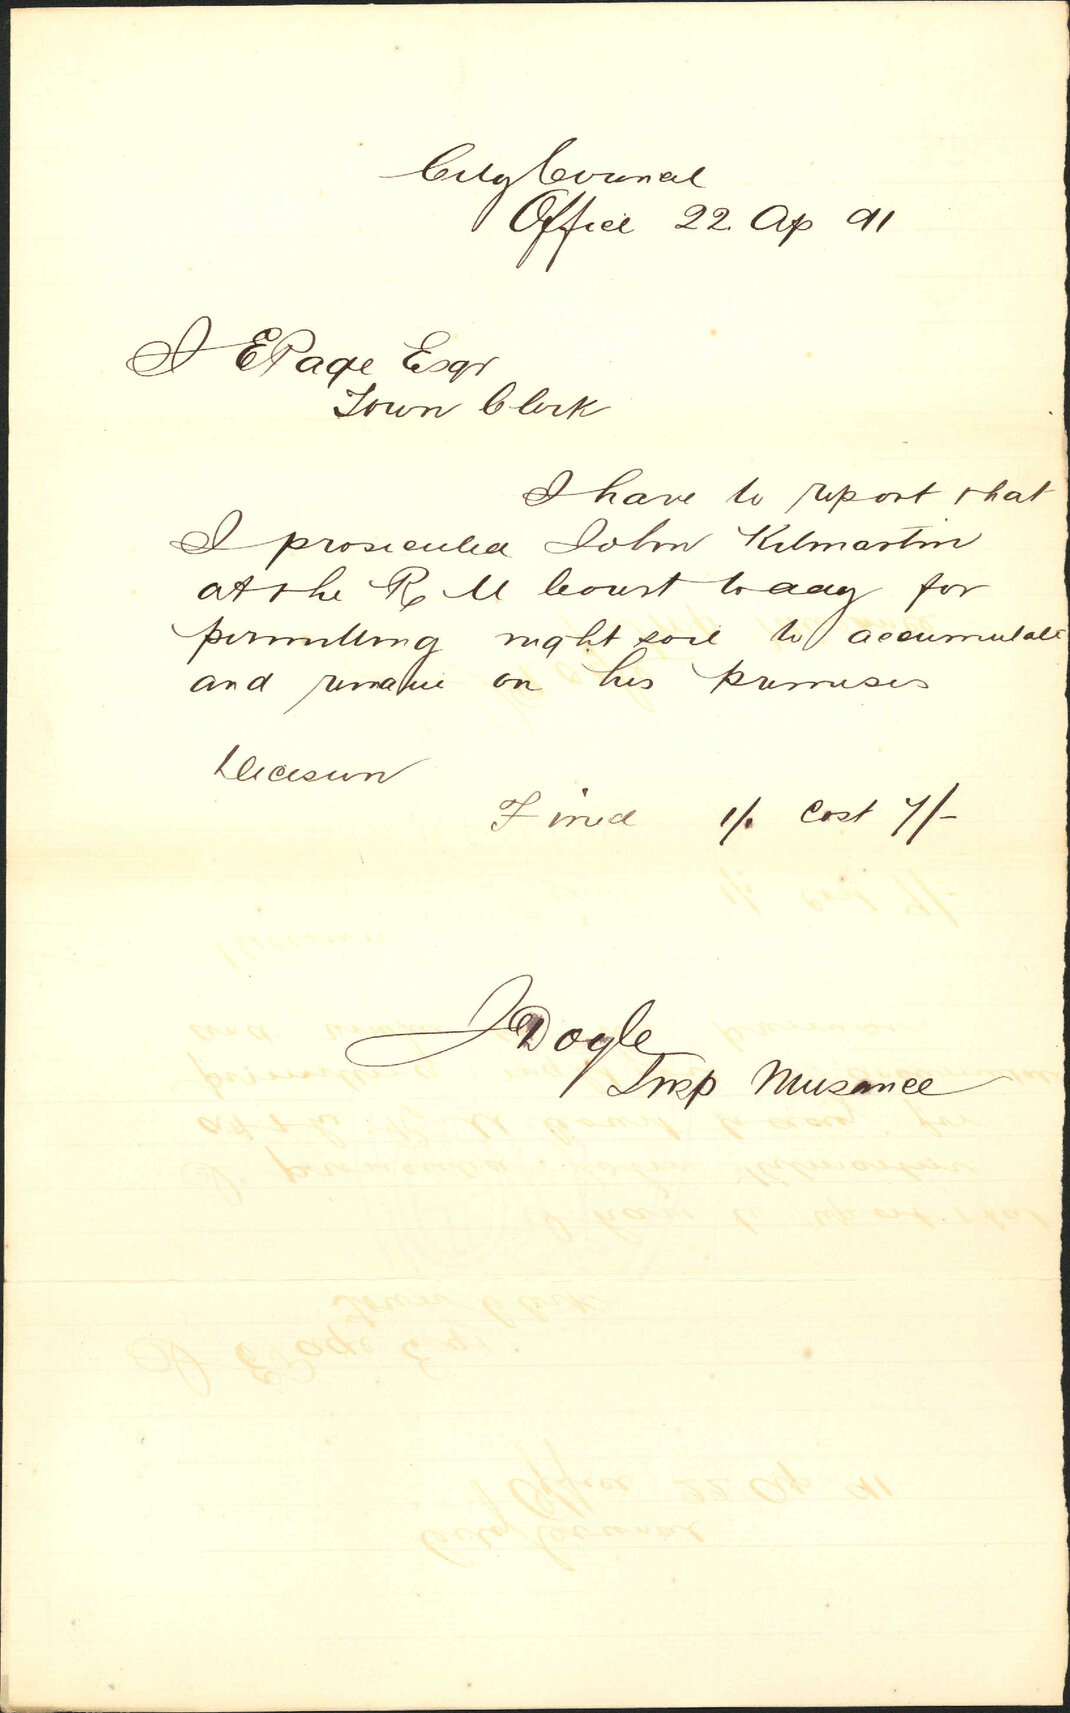 City Council
Office 22 Ap 91
J E Page Esqr
Town Clerk
I have to report that
I prosecuted John Kilmartin
at the R M Court to day for
permitting night soil to accumulate
and remain on his premises
Decision
Fined 1/. Cost 7/-
J Doyle
Insp Nusance